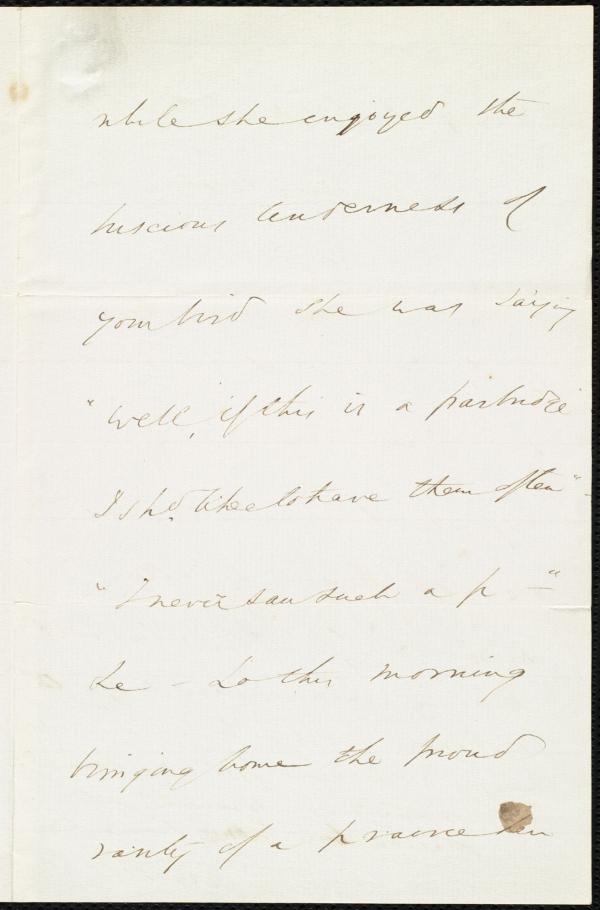 while she enjoyed the
luscious tenderness of
your bird she was saying
"Well, if this is a partridge
I shd. like to have them often" -
"I never saw such a p —"
&c - So this morning
bringing home the proud
rarity of a prairie hen